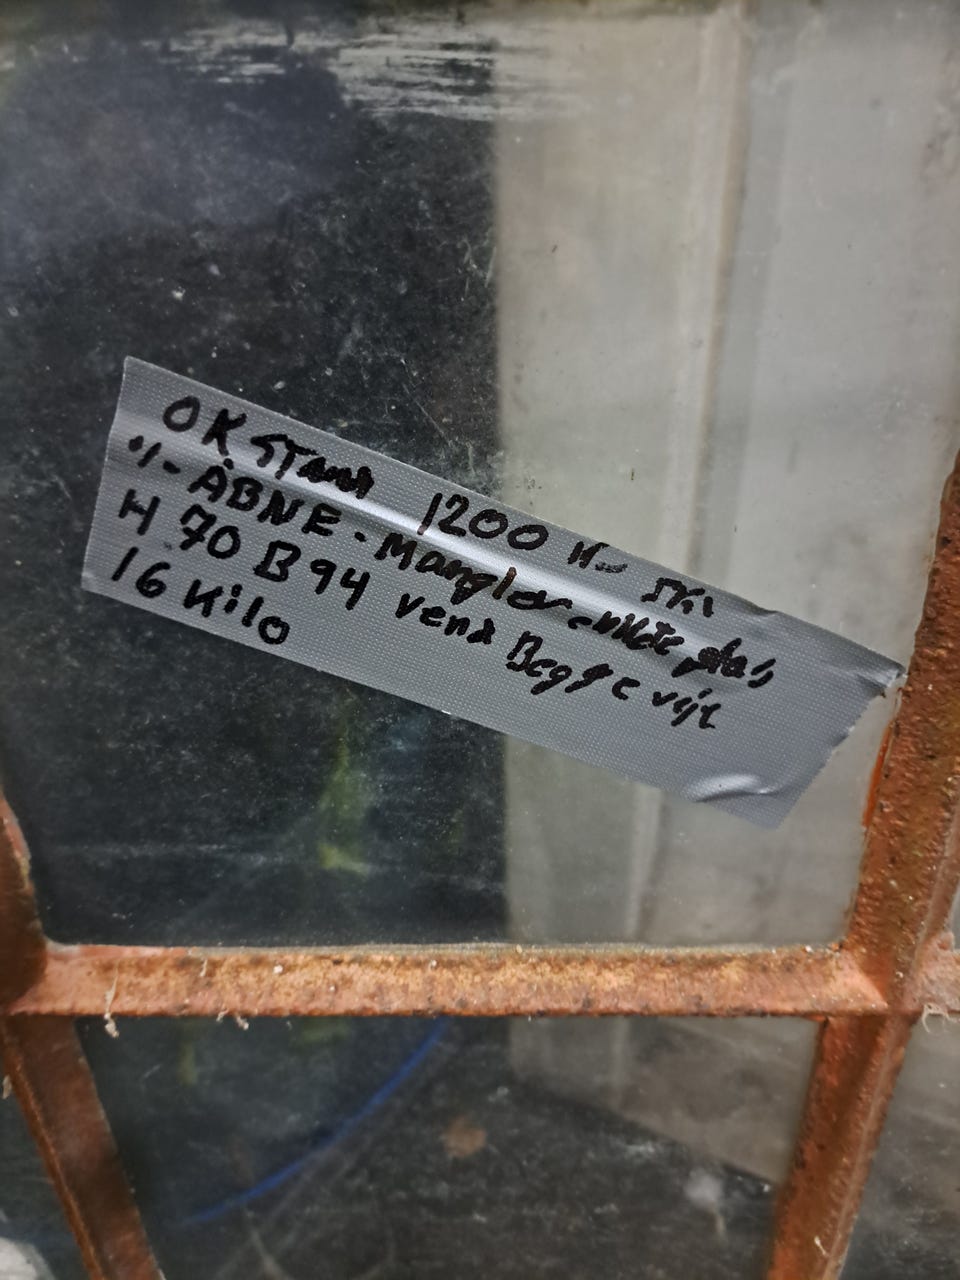 OK STAND 1200 Kr STK
%- ÅBNE - Mangler enkelte glas
H 70 B 94 vend Begge veje
16 Kilo